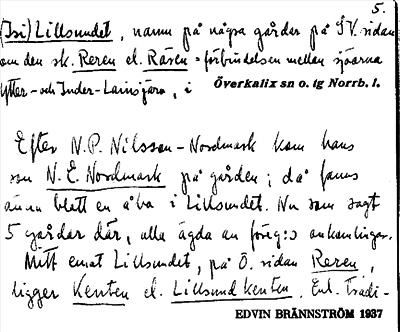 5.
(Isi) Lillsundet, namn på några gårdar på SV. sidan
om den sk. Reren el. Rären = förbindelsen mellan sjöarna
Ytter- och Inder-Lainsjärv, i Överkalix sn o. tg Norrb. l.
Efter N.P. Nilsson-Nordmark kom hans
son N.E. Nordmark på gården; då fanns
ännu blott en åbo i Lillsundet. Nu som sagt
5 gårdar där, alla ägda av föreg:s ankomlingar.
Mitt emot Lillsundet, på Ö. sidan Reren,
ligger Kenten el. Lillsundkenten. Enl. tradi-
EDVIN BRÄNNSTRÖM 1937